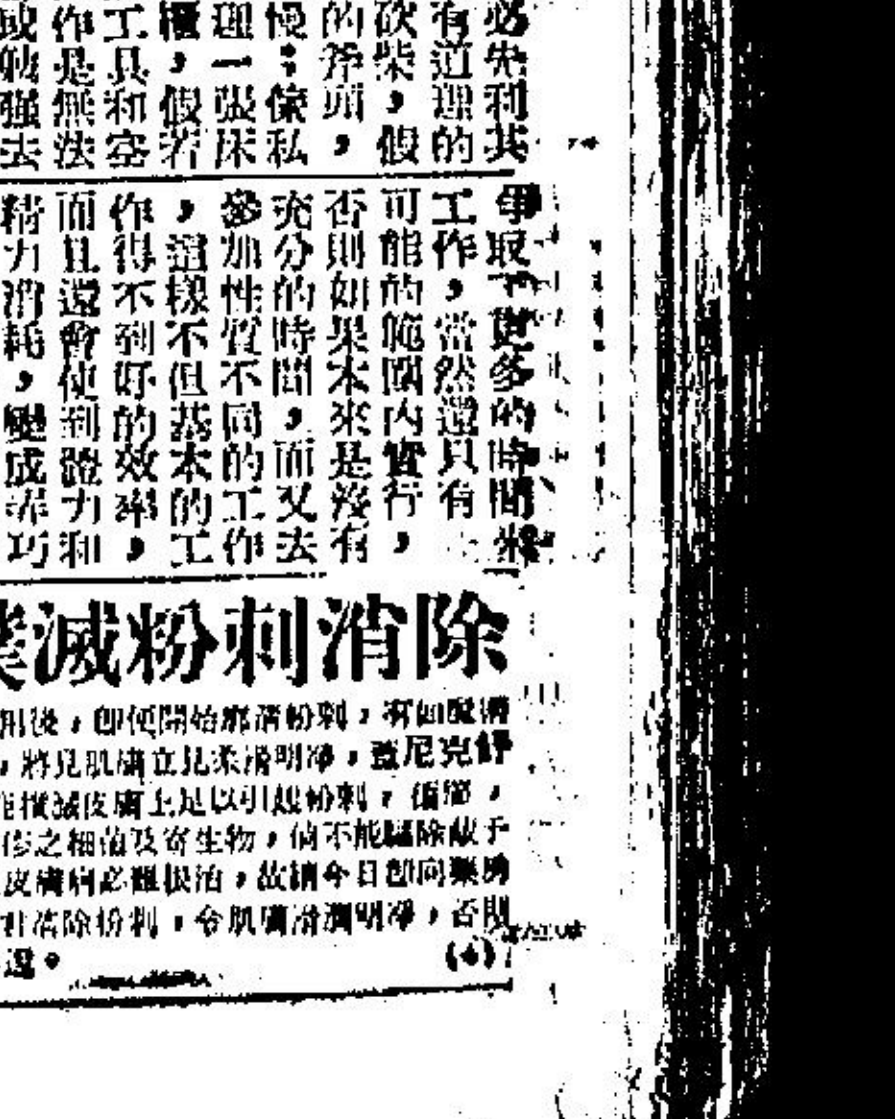 必先利其
有道理的
砍柴,假
的斧頭,
慢;傢私
理一張床
櫃,假若
工具和
作是無法
或勉强去
爭取了更多的時間來
工作,當然還只有
可能的範圍內實行,
否則如果本來是沒有
充分的時間,而又去
參加性質不同的工作
,這樣不但基本的工
作得不到好的效率,
而且還會使到體力和
精力消耗,變成弄巧
除消刺粉滅
用後,即使開始廓清粉刺,有如
,將見肌膚立見柔滑明淨,蓋尼克舒
能撲滅皮膚上足以引起粉刺,
疹之細菌及寄生物,倘不能驅除故予
皮膚病必難根治,故請今日即向藥房
君消除粉刺,令肌膚滑潤明淨,否則
還。